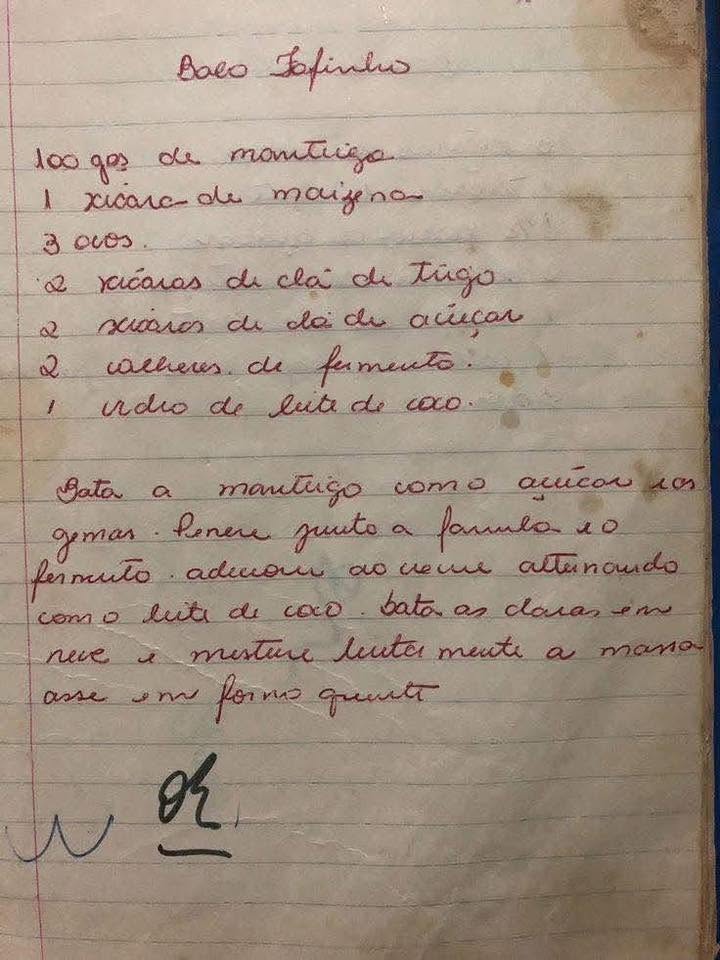 Bolo Fofinho
100 gs de manteiga
1 xícara de maizena
3 ovos.
2 xícaras de chá de trigo
2 xícaras de chá de açúcar
2 colheres de fermento.
1 vidro de leite de coco.
Bata a manteiga com o açúcar e as
gemas. Penere junto a farinha e o
fermento. adicione ao creme alternando
com o leite de coco. bata as claras em
neve e misture lentamente a massa
asse em forno quente
OK